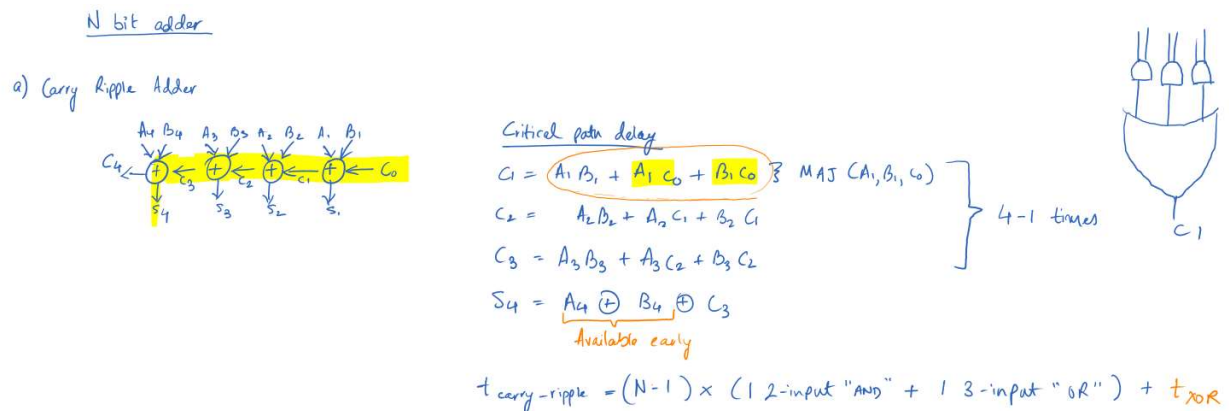 N bit adder
a) Carry Ripple Adder
A4 B4 A3 B3 A2 B2 A1 B1
C4 + C3 + C2 + C1 + C0
S4 S3 S2 S1
Critical path delay
C1 = A1 B1 + A1 C0 + B1 C0 } MAJ (A1, B1, C0)
C2 = A2 B2 + A2 C1 + B2 C1
C3 = A3 B3 + A3 C2 + B3 C2
4-1 times
S4 = A4 ⊕ B4 ⊕ C3
Available early
t carry-ripple = (N-1) × (1 2-input "AND" + 1 3-input "OR") + t XOR
C1